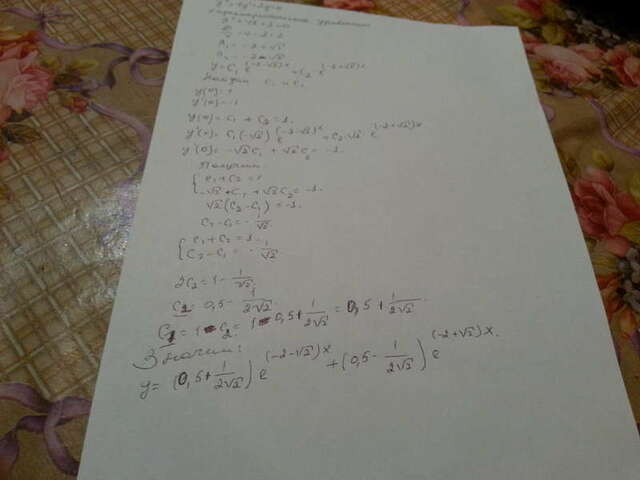 Характеристическое уравнение
y = C₁ e^(-2-√2)x + C₂ e^(-2+√2)x
Найдём C₁ и C₂
y(0)=1
y'(0)=-1
y(0)= C₁ + C₂ = 1.
y'(x)= C₁(-√2) e^(-2-√2)x + C₂·√2 e^(-2+√2)x
y'(0)= -√2C₁ + √2C₂ = -1.
Получим:
{ C₁+C₂=1
-√2+C₁ + √2C₂ = -1.
√2(C₂-C₁) = -1.
C₂-C₁ = -1/√2.
{ C₁+C₂ = 1
C₂-C₁ = -1/√2.
2C₂ = 1 - 1/√2.
C₂ = 0,5 - 1/2√2.
C₁ = 1 - C₂ = 1 - 0,5 + 1/2√2 = 0,5 + 1/2√2.
Значит:
y = (0,5 + 1/2√2) e^(-2-√2)x + (0,5 - 1/2√2) e^(-2+√2)x.